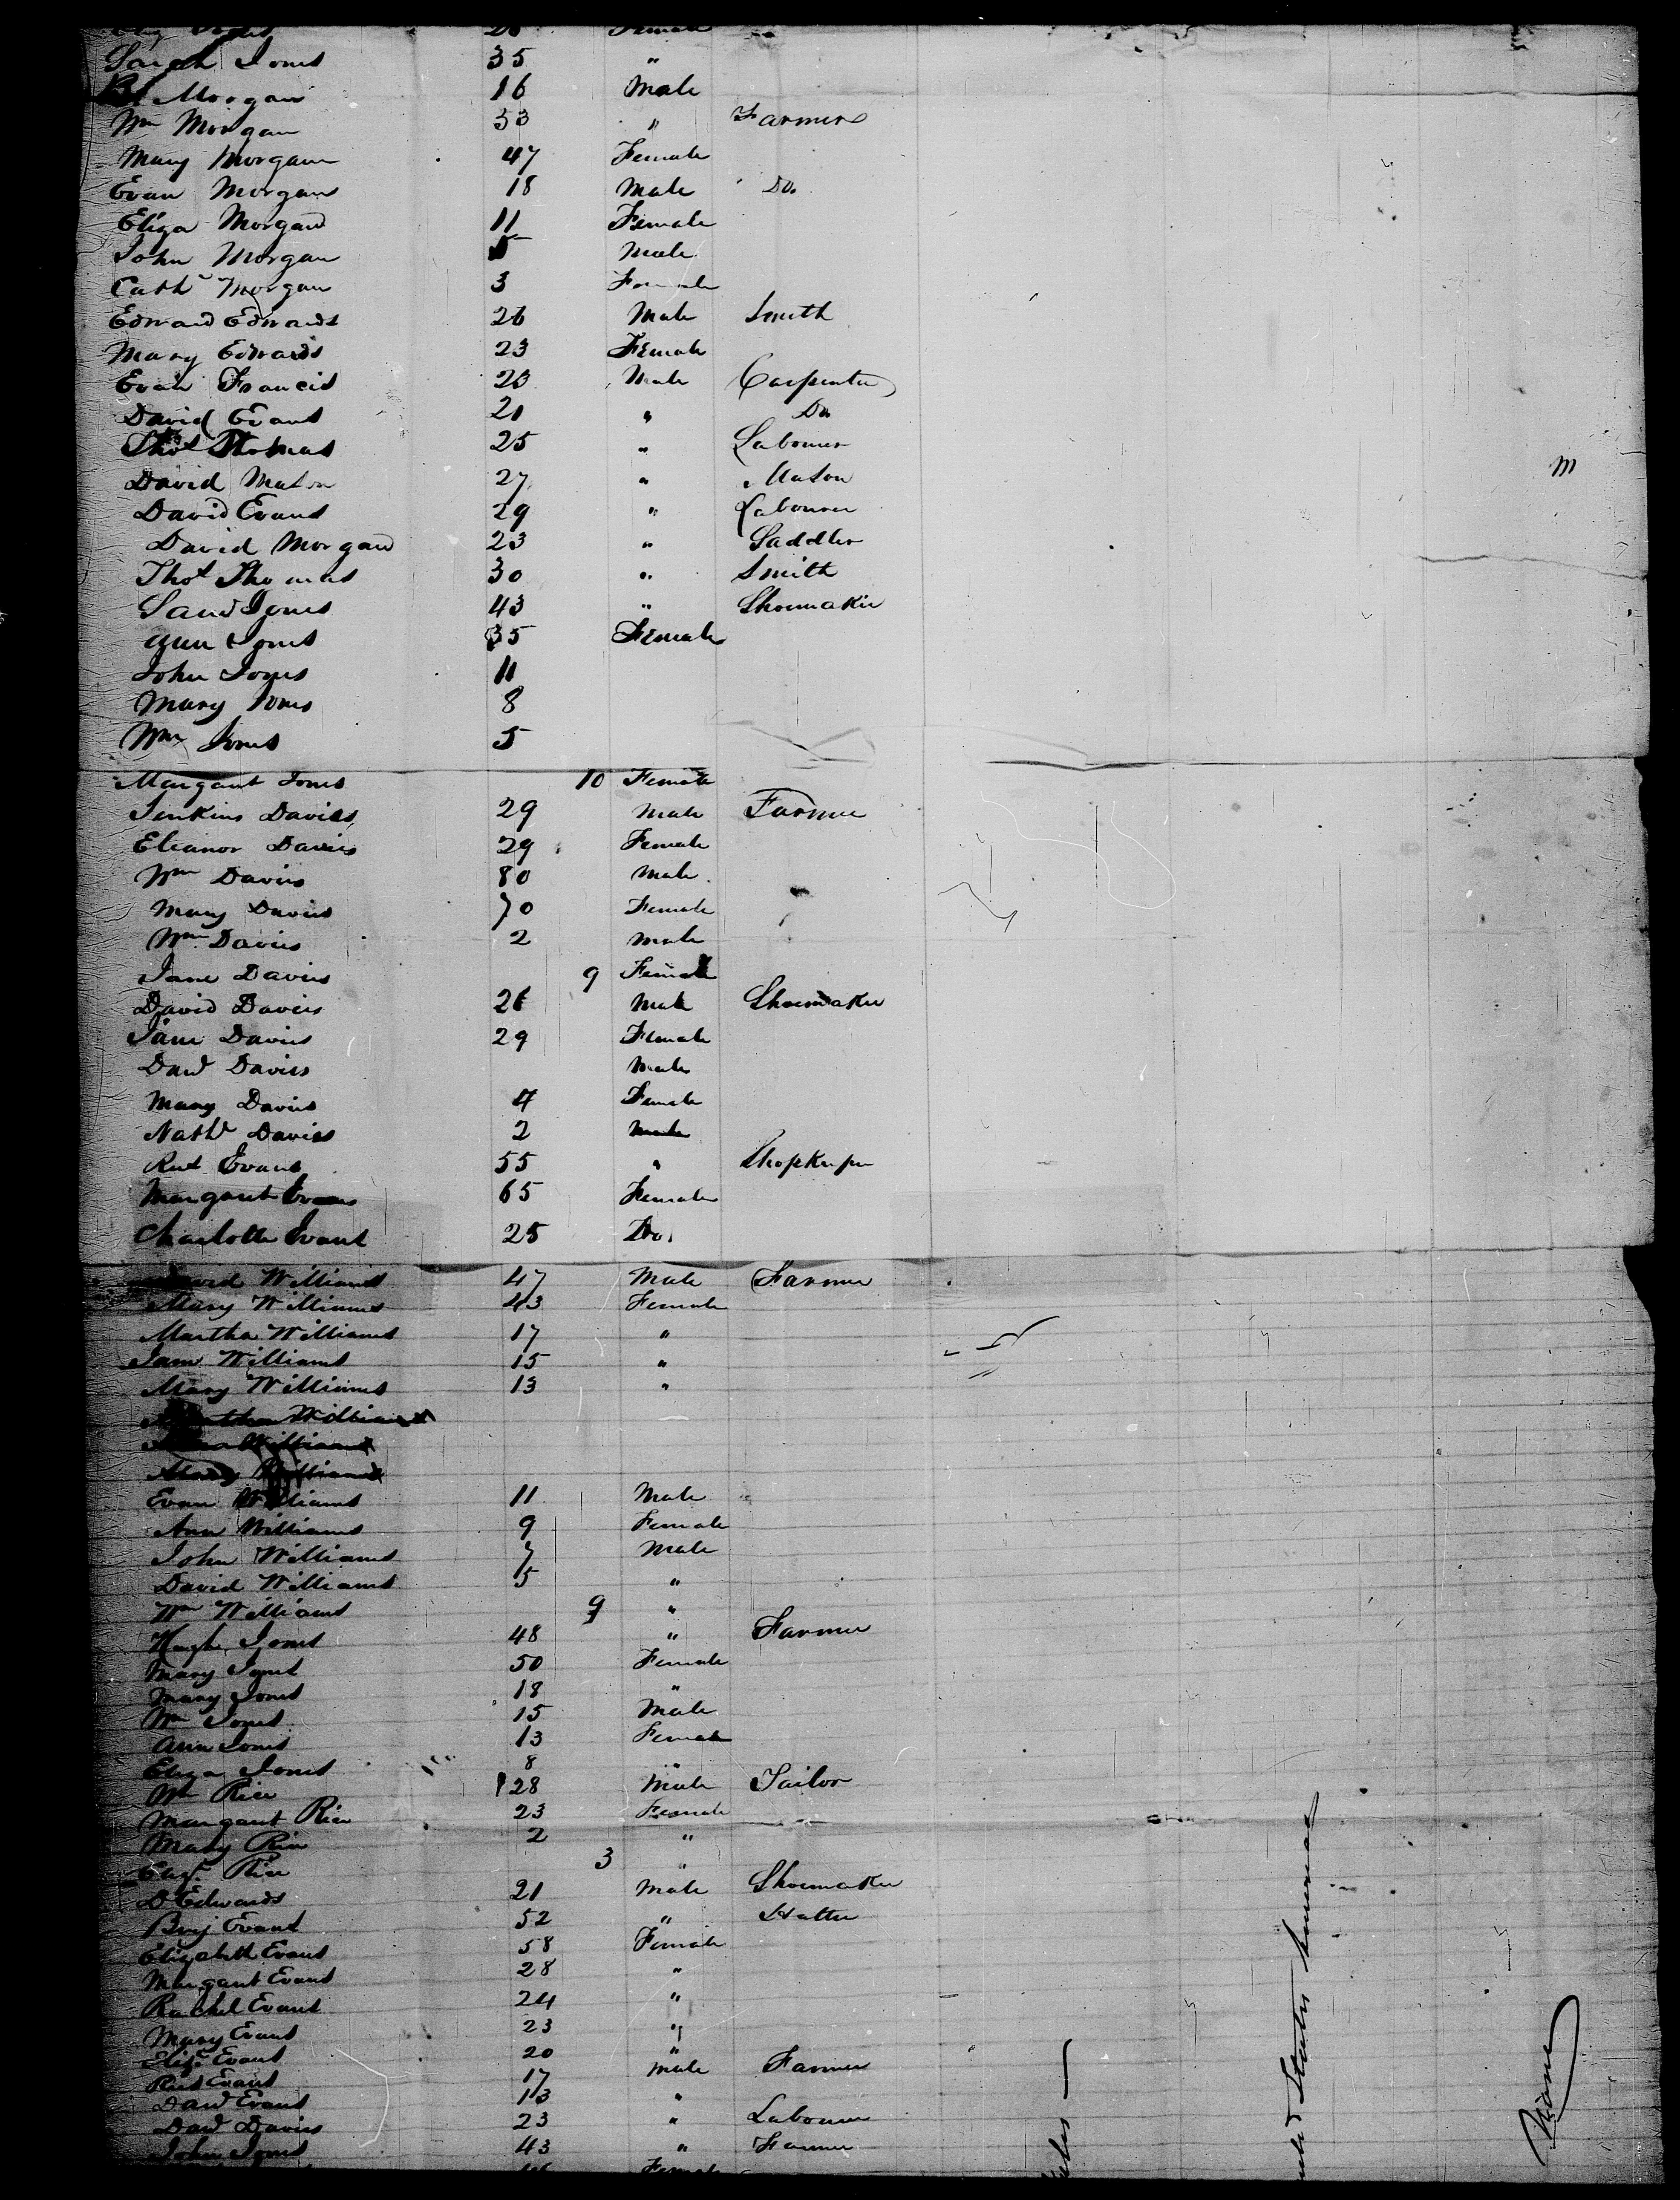 Sarah Jones 35 "
Morgan 16 Male
Wm Morgan 33 " Farmer
Mary Morgan 47 Female
Evan Morgan 18 Male Do.
Eliza Morgan 11 Female
John Morgan 5 Male
Cath Morgan 3 Female
Edward Edwards 26 Male Smith
Mary Edwards 23 Female
Evan Francis 23 Male Carpenter
David Evans 21 " Do
Thos Thomas 25 " Labourer
David Mason 27 " Mason
David Evans 29 " Labourer
David Morgan 23 " Saddler
Thos Thomas 30 " Smith
Jones 43 " Shoemaker
Ann Jones 35 Female
John Jones 11
Mary Jones 8
Wm Jones 5
Margaret Jones 10 Female
Jenkins Davies 29 Male Farmer
Eleanor Davies 29 Female
Wm Davies 80 Male
Mary Davies 70 Female
Wm Davies 2 Male
Jane Davies 9 Female
David Davies 26 Male Shoemaker
Jane Davies 29 Female
Davd Davies Male
Mary Davies 4 Female
Nathl Davies 2 Male
Evans 55 " Shopkeeper
Margaret Evans 65 Female
Charlotte Evans 25 Do.
David Williams 47 Male Farmer
Mary Williams 43 Female
Martha Williams 17 "
Jane Williams 15 "
Mary Williams 13 "
Martha Williams
Williams
Mary Williams
Evan Williams 11 Male
Ann Williams 9 Female
John Williams 7 Male
David Williams 5 "
Wm Williams 9 "
Hugh Jones 48 " Farmer
Mary Jones 50 Female
Mary Jones 18 "
Wm Jones 15 Male
Ann Jones 13 Female
Eliza Jones 8 "
Wm Rice 28 Male Tailor
Margaret Rice 23 Female
Mary Rice 2 "
Eliz. Rice 3 "
D Edwards 21 Male Shoemaker
Benj Evans 52 " Hatter
Elizabeth Evans 58 Female
Margaret Evans 28 "
Rachel Evans 24 "
Mary Evans 23 "
Eliz. Evans 20 "
Evans 17 Male Farmer
Davd Evans 13 "
Davd Davies 23 " Labourer
John Jones 43 " Farmer
Female
m
States America
None